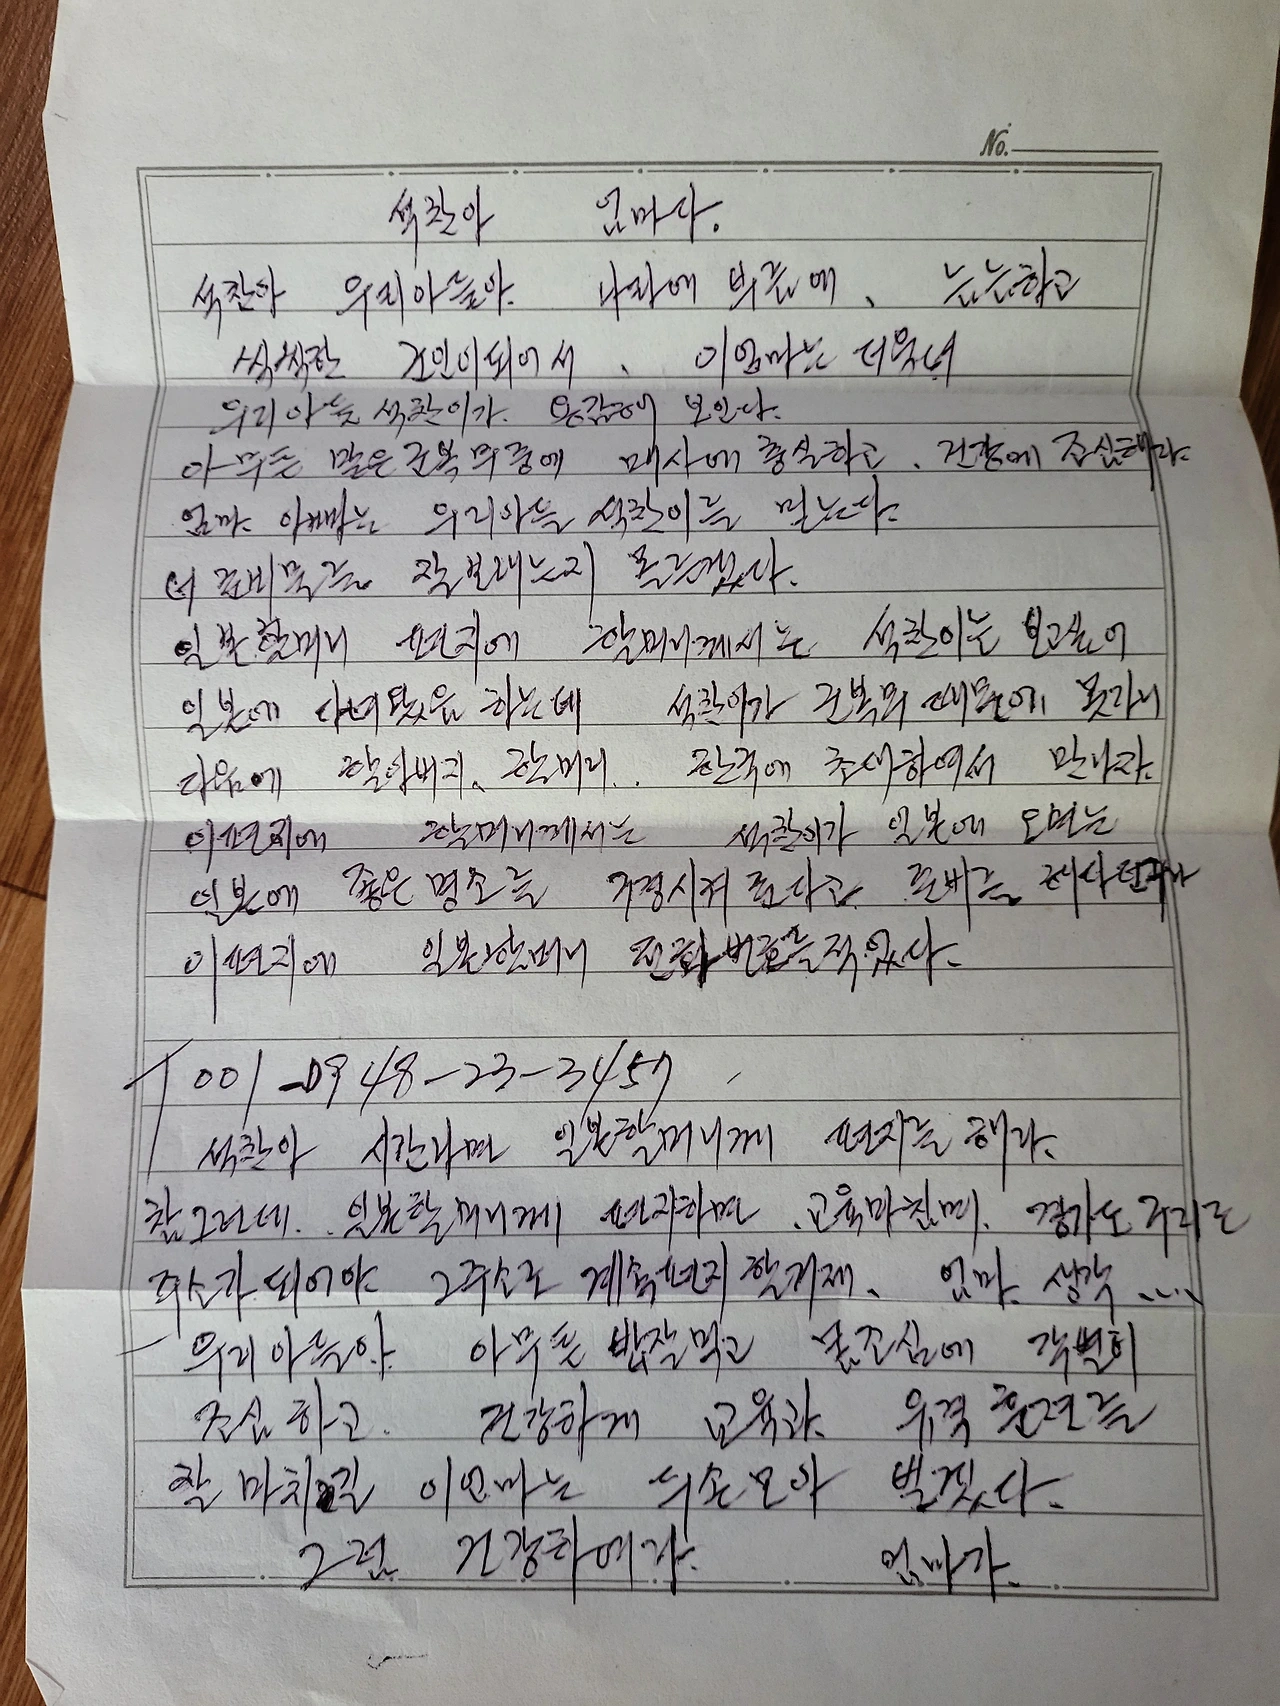 No.
석찬아 엄마다.
석찬아 우리아들아. 나라에 부름에, 늠늠하고
씩씩한 군인이되어서, 이엄마는 더욱더
우리아들 석찬이가. 용감해 보인다.
아무튼 말은군복무중에 매사에 충실하고. 건강에 조심해라.
엄마. 아빠는 우리아들 석찬이를 믿는다.
너 준비물을 잘보내는지 모르겠다.
일본할머니 편지에 할머니께서는 석찬이는 보고싶어
일본에 하는데 석찬이가 군복무 때문에 못가니
다음에 할아버지. 할머니.. 한국에 초대하여서 만나자.
이편지에 할머니께서는 석찬이가 일본에 오면는
일본에 좋은명소를 구경시켜준다고
이편지에 일본할머니 전화번호를적었다.
001-0948-23-3457
석찬아 시간나면 일본할머니께 편지를해라.
참그런데.. 일본할머니께 편지하면. 교육마치며. 경기도 구리로
주소가되어야. 그주소로 계속편지할거제. 엄마. 생각.....
우리아들아. 아무튼 밥잘먹고 몸조심에 각별히
조심하고. 건강하게 교육과. 유격훈련을
잘마치길 이엄마는 두손모아 빌겠다.
그럼. 건강하여라. 엄마가.